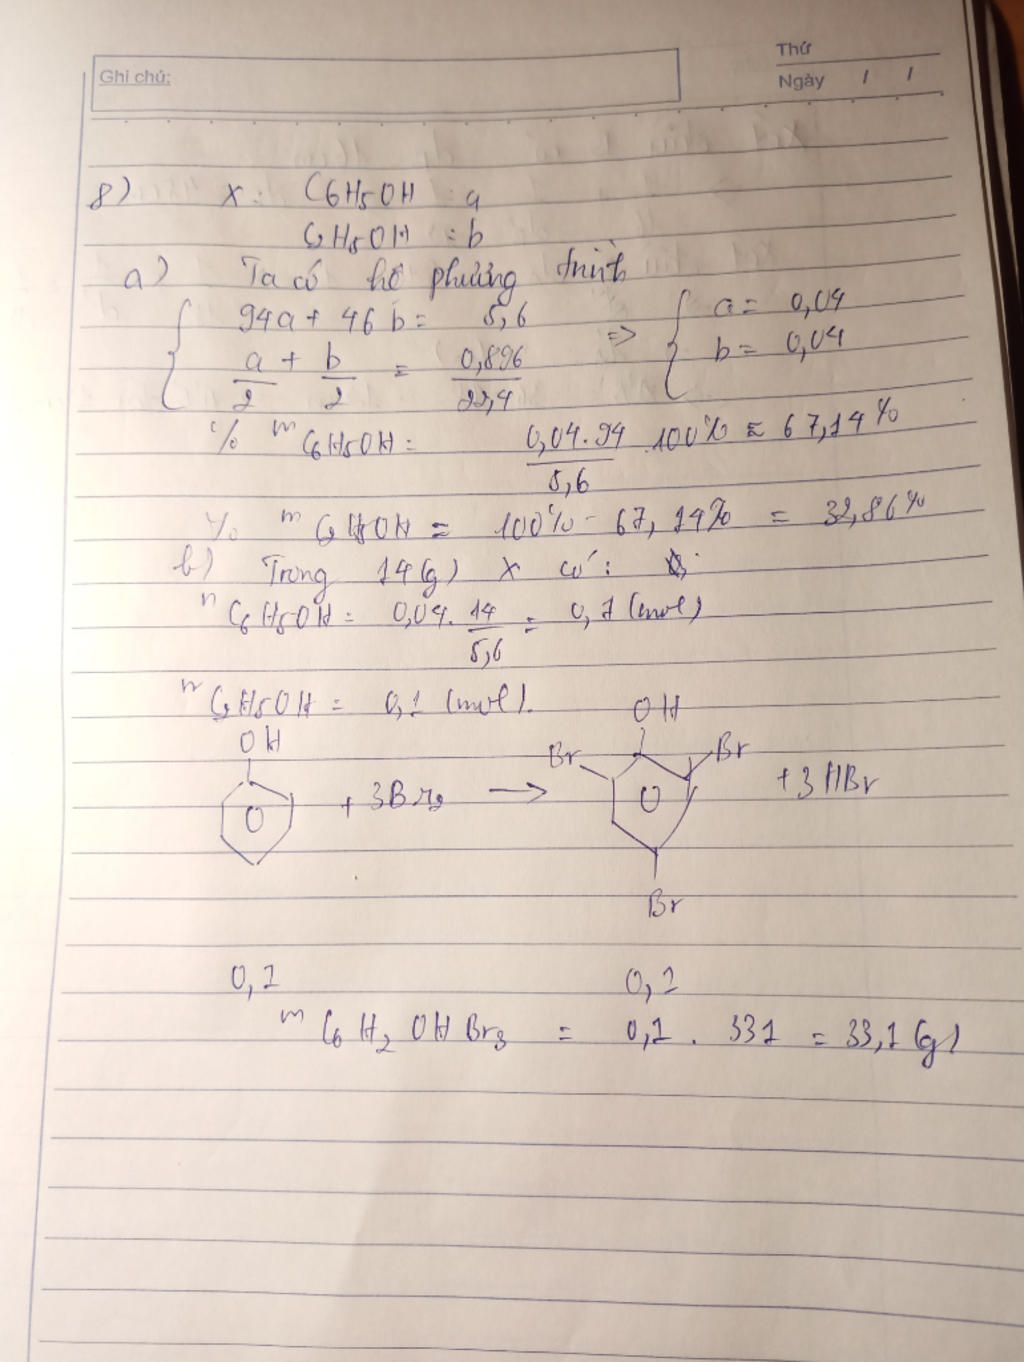 Thứ
Ghi chú:
Ngày / /
8) X: C6H5OH : a
C2H5OH : b
a) Ta có hê phương trình
94a + 46b = 5,6 => a = 0,04
a/2 + b/2 = 0,896/22,4 b = 0,04
% m C6H5OH = 0,04.94/5,6 .100% = 67,14%
% m C2H5OH = 100% - 67,14% = 32,86%
b) Trong 14(g) X có:
n C6H5OH = 0,04. 14/5,6 = 0,1 (mol)
n C2H5OH = 0,1 (mol).
OH OH
Br Br
+ 3Br2 → + 3HBr
Br
0,1 0,1
m C6H2OHBr3 = 0,1 . 331 = 33,1 (g)